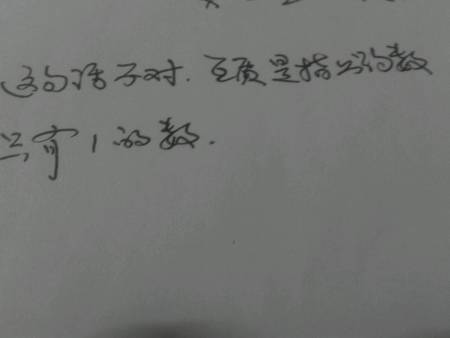 这句话不对.互质是指公约数
只有1的数.